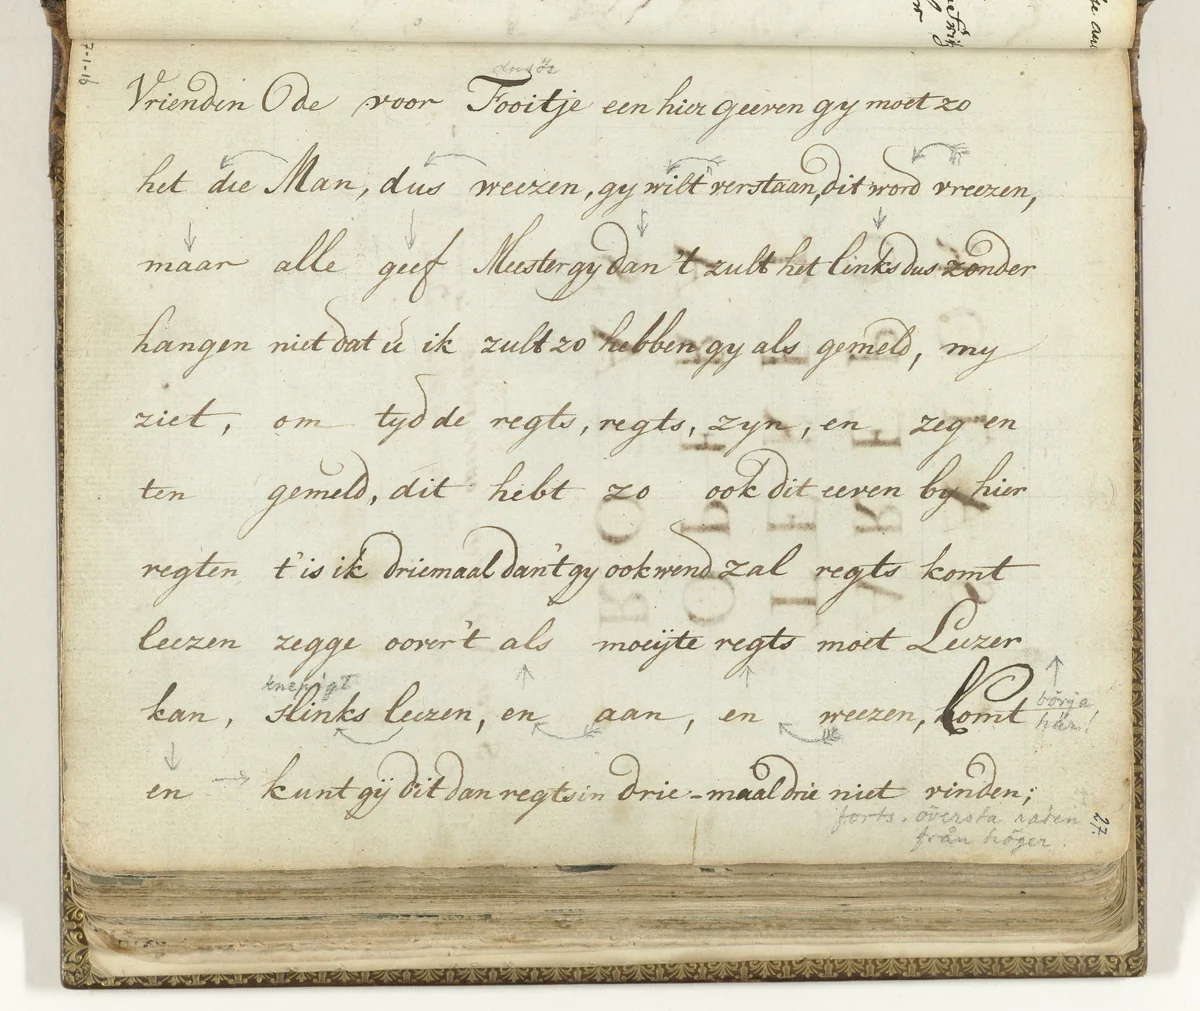 Vrienden Ode voor Fooitje een hier geeven gy moet zo
het die Man, dus weezen, gy wilt verstaan, dit word vreezen,
maar alle geef Meester gy dan't zult het links dus zonder
hangen niet dat u ik zult zo hebben gy als gemeld, my
ziet, om tyd de regts, regts, zyn, en zeg en
ten gemeld, dit hebt zo ook dit eeven by hier
regten t'is ik driemaal dan't gy ook wend zal regts komt
leezen zegge over't als moeijte regts moet Leezer
knepigt
kan, slinks leezen, en aan, en weezen, komt
börja
här!
en kunt gÿ dit dan regts in drie-maal drie niet vinden;
forts. översta raden
från höger.
27.
7-1-16